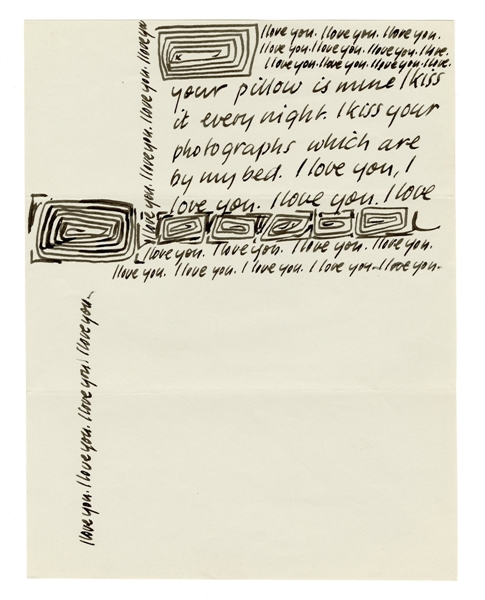 I love you. I love you. I love you.
I love you. I love you. I love you. I love.
I love you. I love you. I love you. I love.
your pillow is mine I kiss
it every night. I kiss your
photographs which are
by my bed. I love you, I
love you. I love you. I love
I love you. I love you. I love you. I love you.
I love you. I love you. I love you. I love you. I love you.
I love you. I love you. I love you. I love you
I love you. I love you. I love you. I love you.